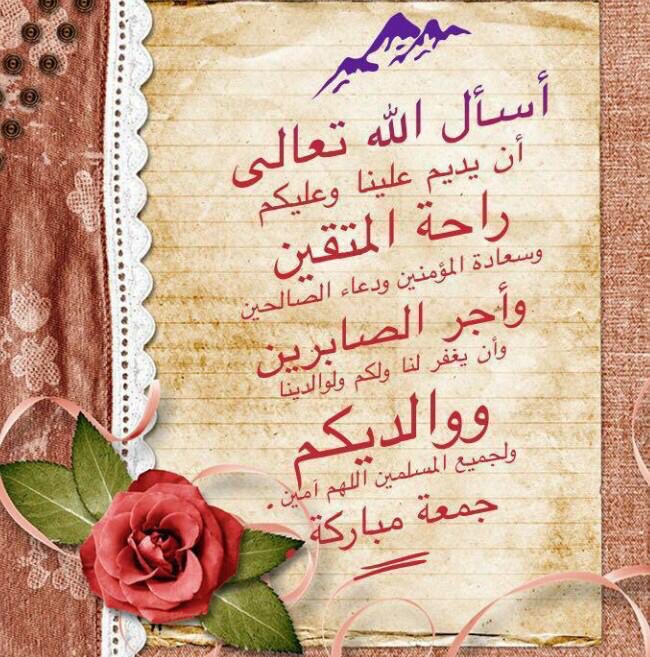 أسأل الله تعالى
أن يديم علينا وعليكم
راحة المتقين
وسعادة المؤمنين ودعاء الصالحين
وأجر الصابرين
وأن يغفر لنا ولكم ولوالدينا
ووالديكم
ولجميع المسلمين اللهم آمين .
جمعة مباركة